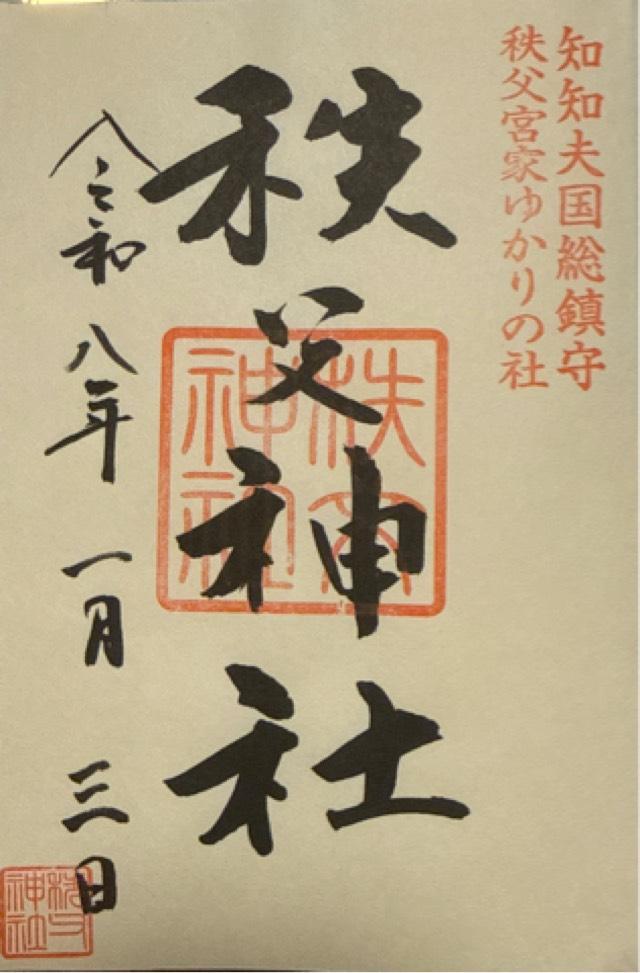 知知夫国総鎮守
秩父宮家ゆかりの社
秩父神社
秩父神社
令和八年一月三日
秩父神社